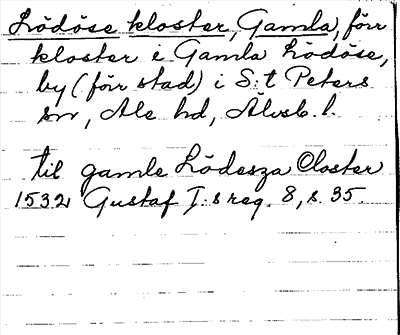 Lödöse kloster, Gamla, förr
kloster i Gamla Lödöse,
by (förr stad) i S:t Peters
sn, Ale hd, Älvsb. l.
til gamle Lödesza Closter
1532 Gustaf I:s reg. 8, s. 35.